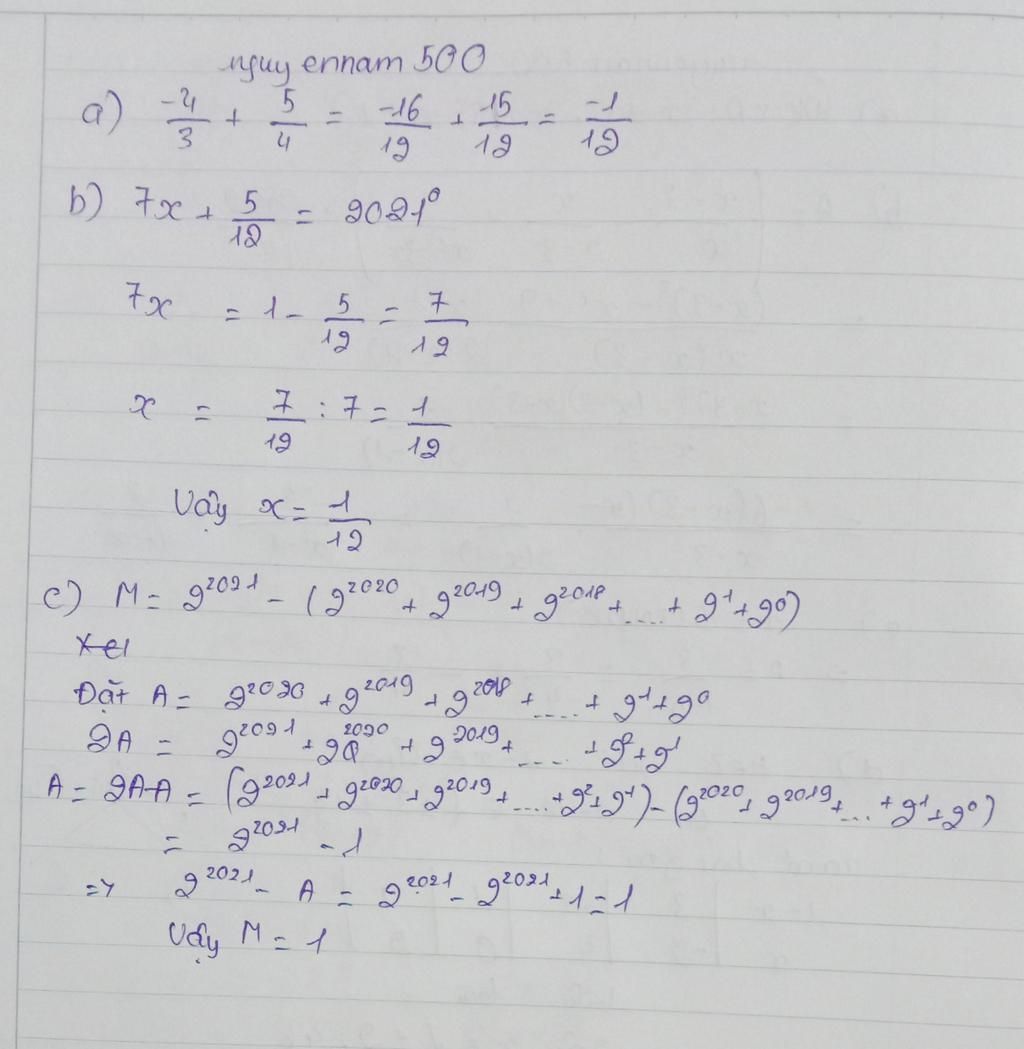 nguyennam 500
a) -4/3 + 5/4 = -16/12 + 15/12 = -1/12
b) 7x + 5/12 = 2021⁰
7x = 1 - 5/12 = 7/12
x = 7/12 : 7 = 1/12
Vậy x = 1/12
c) M = 2²⁰²¹ - (2²⁰²⁰ + 2²⁰¹⁹ + 2²⁰¹⁸ + .... + 2¹ + 2⁰)
Đặt A = 2²⁰²⁰ + 2²⁰¹⁹ + 2²⁰¹⁸ + .... + 2¹ + 2⁰
2A = 2²⁰²¹ + 2²⁰²⁰ + 2²⁰¹⁹ + .... + 2² + 2¹
A = 2A-A = (2²⁰²¹ + 2²⁰²⁰ + 2²⁰¹⁹ + .... + 2² + 2¹) - (2²⁰²⁰ + 2²⁰¹⁹ + ... + 2¹ + 2⁰)
= 2²⁰²¹ - 1
=> 2²⁰²¹ - A = 2²⁰²¹ - 2²⁰²¹ + 1 = 1
Vậy M = 1